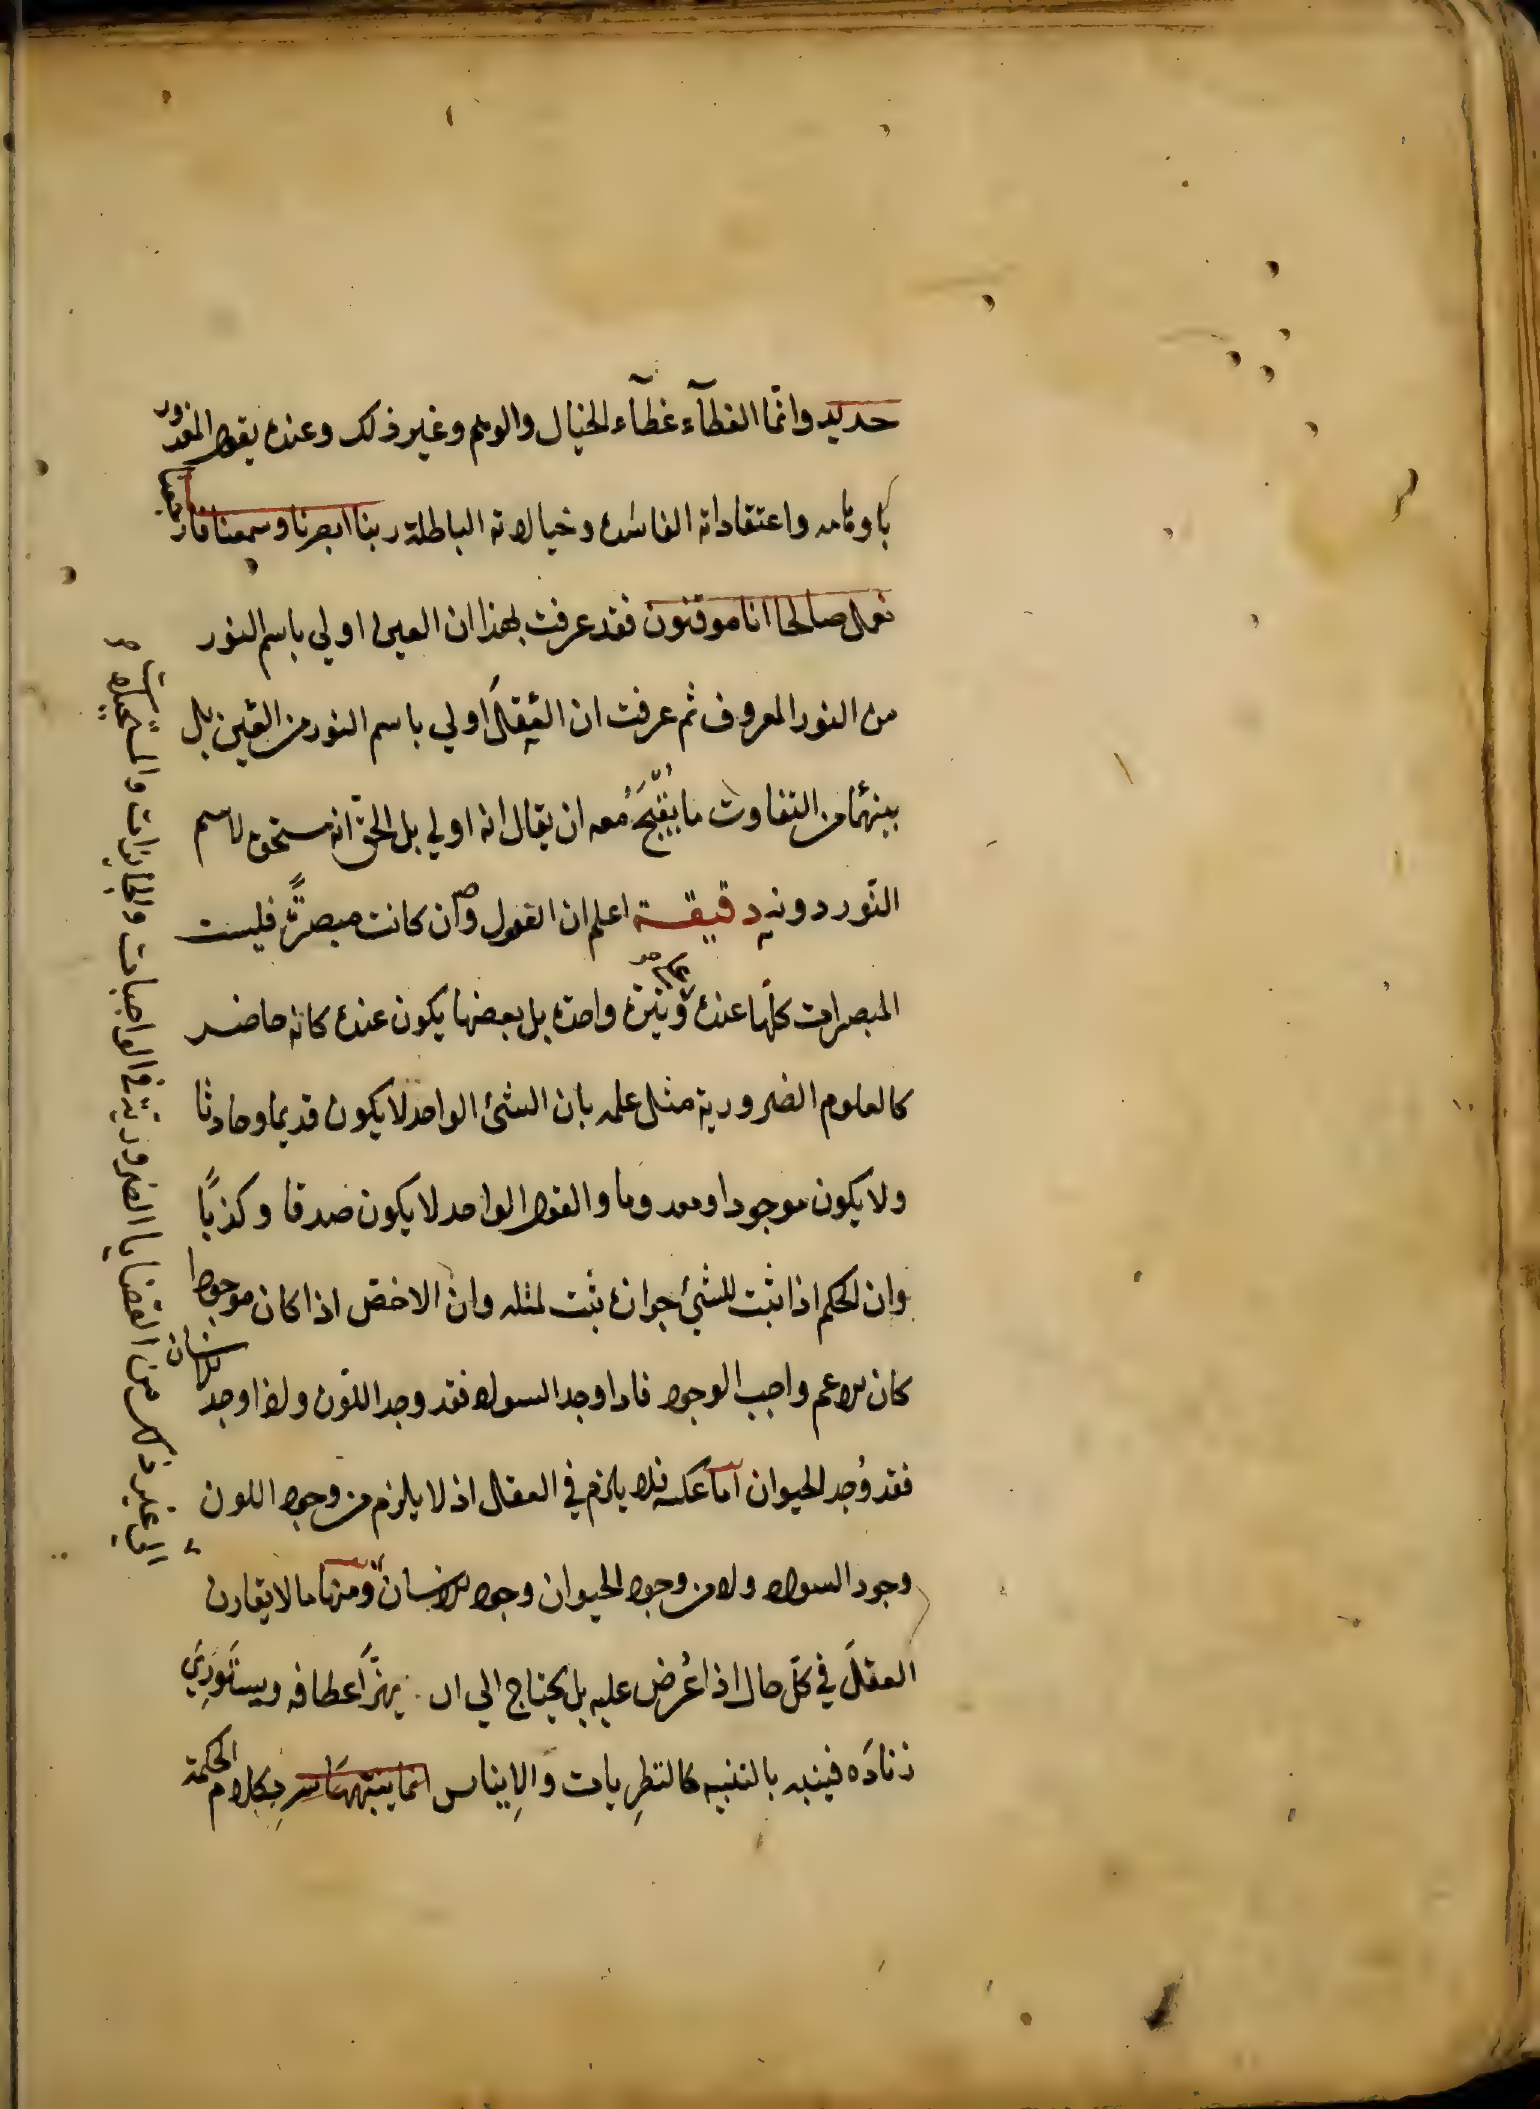 حديد وانّما الغطآء غطآء الخيال والوهم وغير ذلك وعنده يقول المغرور
باوهامه واعتقاداته الفاسدة وخيالاته الباطلة ربنا ابصرنا وسمعنا فارجعنا
نعمل صالحا انا موقنون فقد عرفت بهذا ان العين اولي باسم النور
من النور المعروف ثم عرفت ان العقل اولي باسم النور من العين بل
بينهما من التفاوت ما يُقَبَّحُ معه ان يقال انه اولي بل الحق انه مستحق لاسم
النّور دونه دقيقة اعلم ان العقول وان كانت مبصرةً فليست
المبصرات كلّها عنده وتيرة واحدة بل بعضها يكون عنده كانه حاضر
على صح
كالعلوم الضرورية مثل علمه بان الشئ الواحد لا يكون قديما وحادثا
ولا يكون موجودا ومعدوما والقول الواحد لا يكون صدقا وكذبًا
وان الحكم اذا ثبت للشئ جوازه ثبت لمثله وان الاخصّ اذا كان موجودا
كان الاعم واجب الوجود فاذا وجد السواد فقد وجد اللون واذا وجد الانسان
فقد وُجد الحيوان امّا عكسه فلا يلزم في العقل اذ لا يلزم من وجود اللون
وجود السواد ولا من وجود الحيوان وجود الانسان ومنها ما لا يقارن
العقلَ في كلّ حال اذا عُرِض عليه بل يحتاج الي ان يهزّ اعطافه ويستَورِيَ
زنادَه فينبه بالتنبيه كالنظرِيات والاِيناس انما ينبّهه سرِ بكلام الحكمة
الي غير ذلك من القضايا الضروريّة في الواجبات والجايزات والمستحيلات